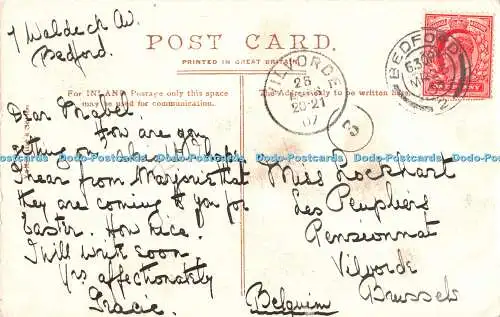 7 Waldeck Av.
Bedford.
POST CARD.
PRINTED IN GREAT BRITAIN.
For INLAND Postage only this space
may be used for communication.
The Address only to be written here.
VILVORDE
26
20-21
07
BEDFORD
6.30 PM
3
Dear Mabel
How are you
getting on
I hear from Marjorie that
they are coming to you for
Easter. How nice.
I will write soon.
Yrs affectionately
Gracie.
Miss Lockhart
Les Peupliers
Pensionnat
Vilvorde
Brussels
Belgium
Dodo-Postcards Dodo-Postcards Dodo-Postcards Dodo-Postcards Dodo-Postcards Dodo-Postcards